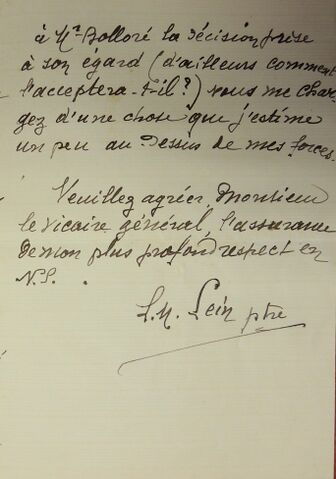 à Mr Bolloré la décision prise
à son égard (d'ailleurs comment
l'acceptera-t-il?) vous me char
gez d'une chose que j'estime
un peu au dessus de mes forces.
Veuillez agréer, Monsieur
le Vicaire général, l'assurance
de mon plus profond respect en
N.S.
Lein ptre